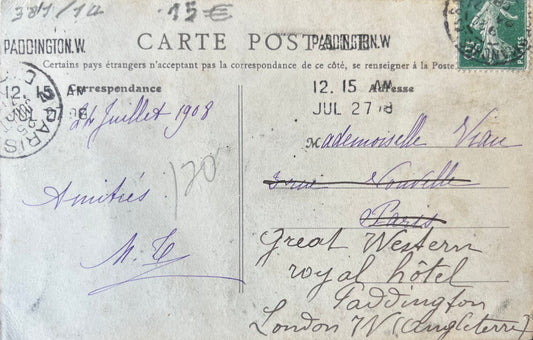 381/14
15 €
PADDINGTON.W.
PADDINGTON.W
CARTE POSTALE
Certains pays étrangers n'acceptant pas la correspondance de ce côté, se renseigner à la Poste
Correspondance
Adresse
12. 15 AM
12. 15 AM
JUL 27 08
PARIS
24 Juillet 1908
Mademoiselle Viau
3 rue Nouville
Paris
120
Amitiés
M. T
Great Western
royal hôtel
Paddington
London W (Angleterre)